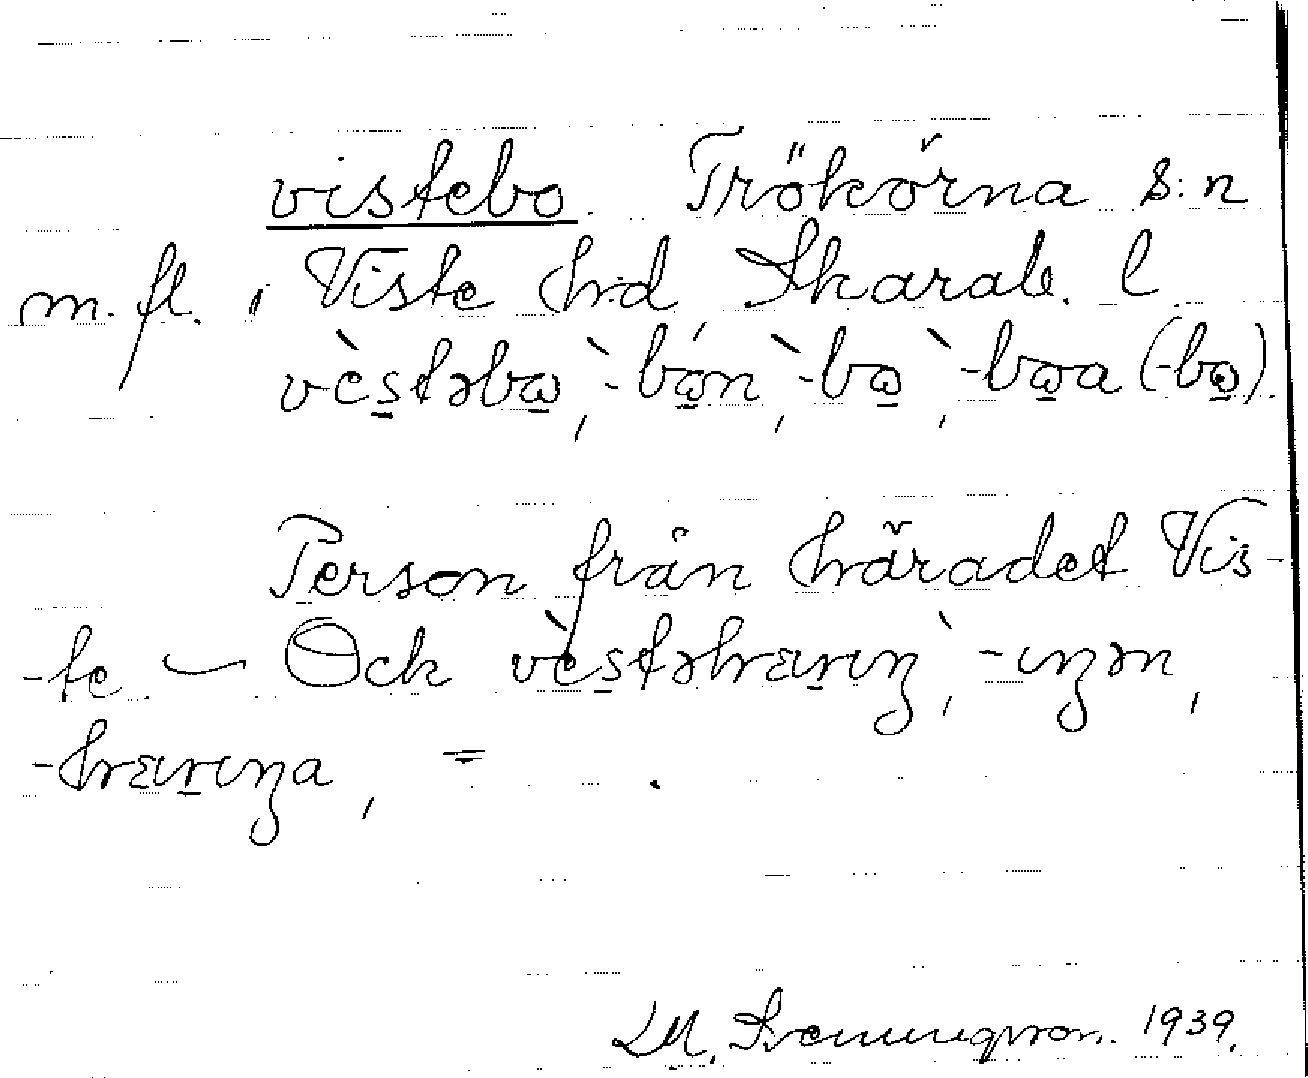 vistebo. Trökörna s:n
m. fl. i Viste hrd, Skarab. l.
vèstəbo, -bón, -bo, -boa (-bo).
Person från häradet Vis-
-te. — Ock vèstəhæ̱rɩŋ, -ɩŋən,
-hæ̱rɩŋa, =
1939.